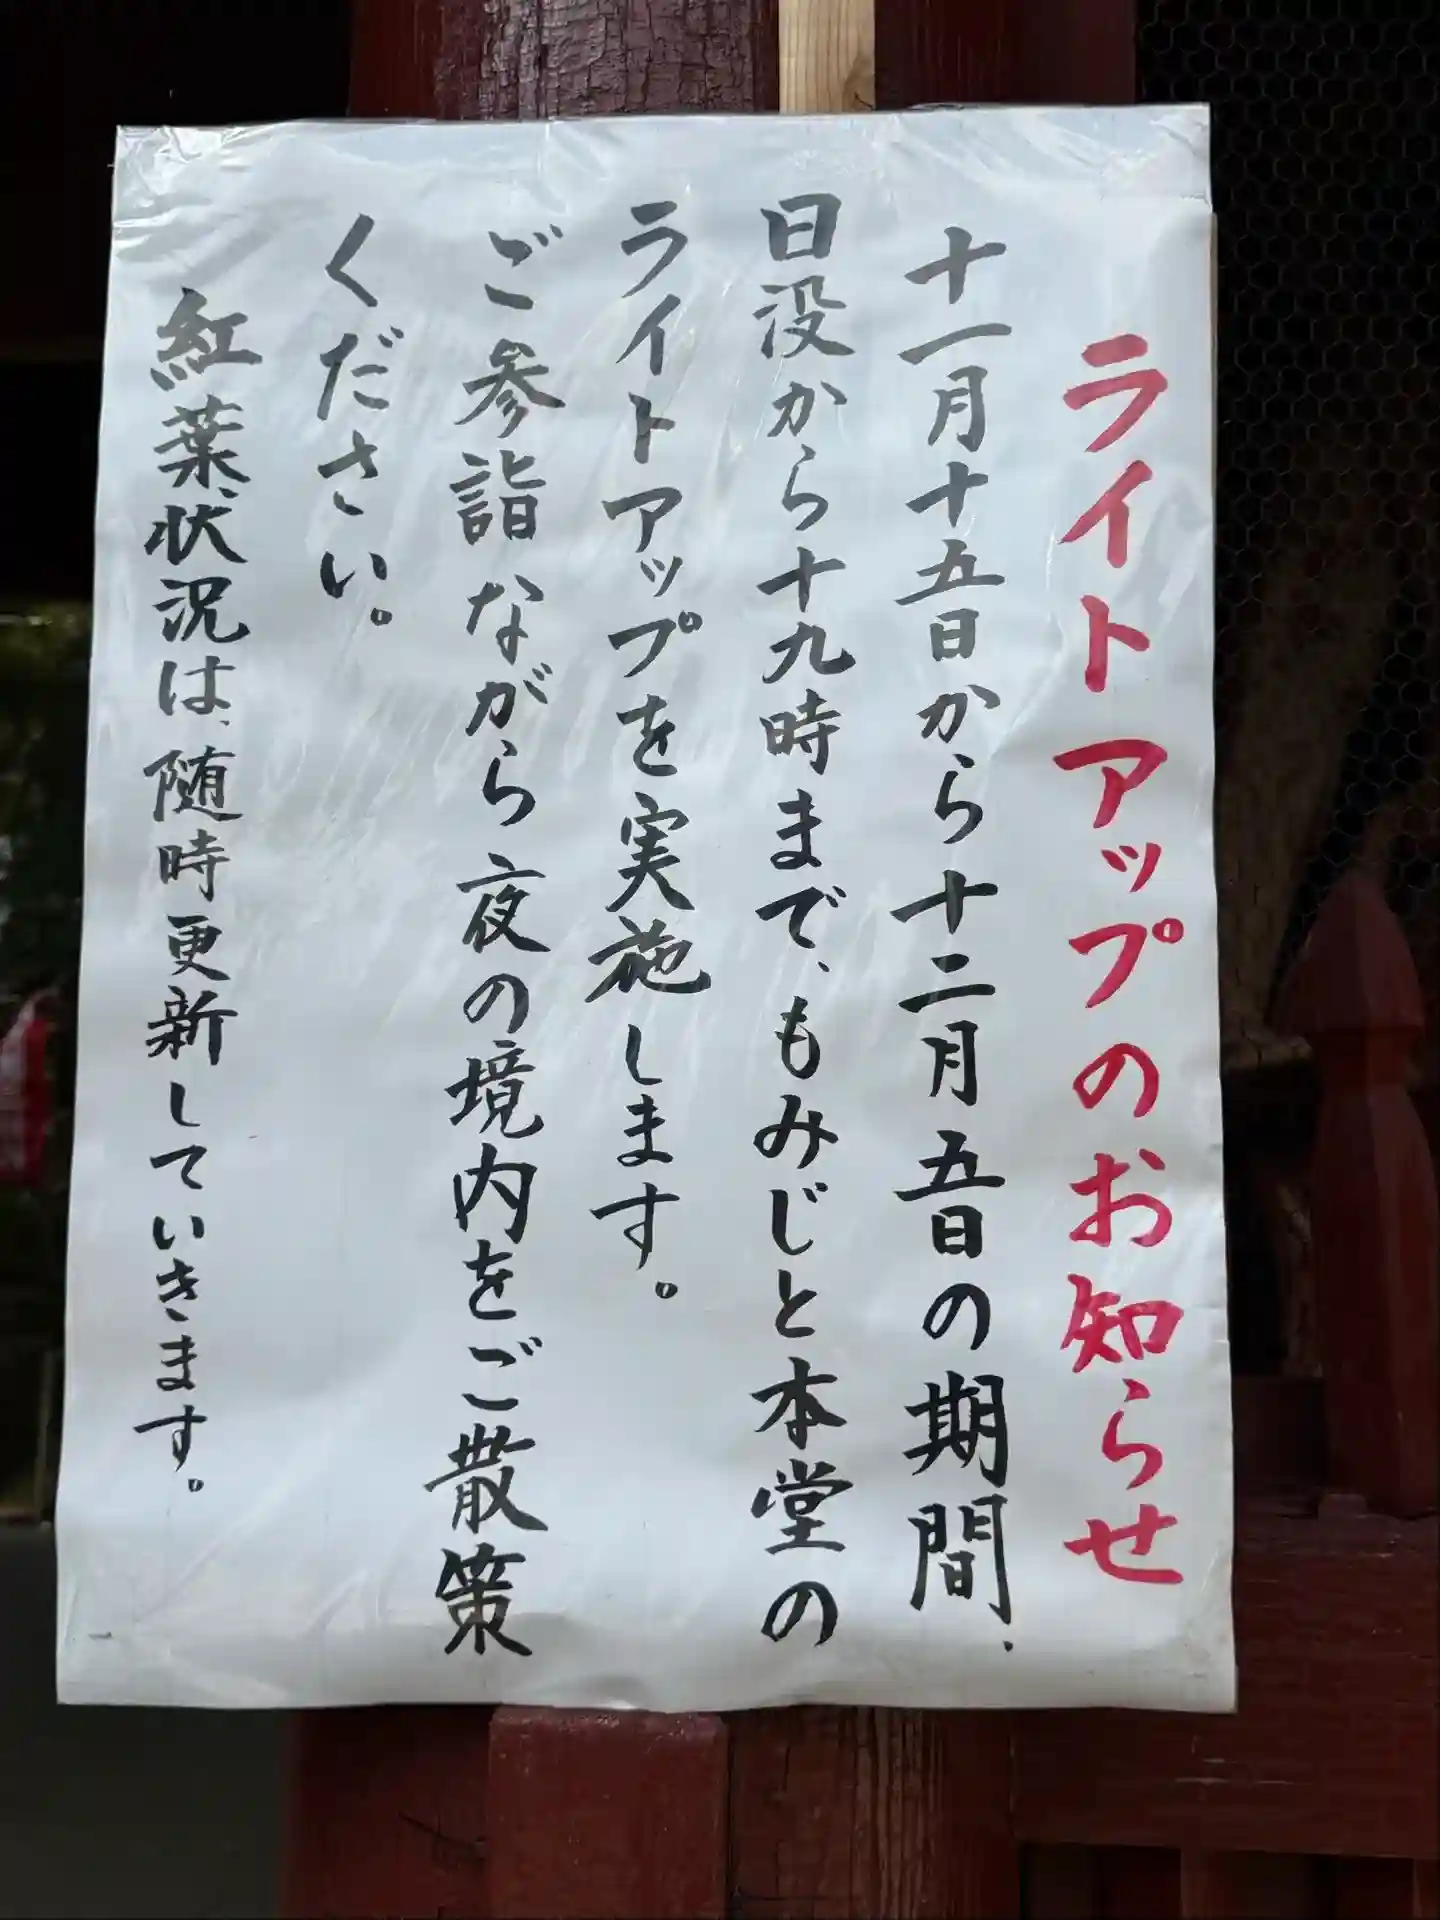 ライトアップのお知らせ
十一月十五日から十二月五日の期間、
日没から十九時まで、もみじと本堂の
ライトアップを実施します。
ご参詣ながら夜の境内をご散策
ください。
紅葉状況は、随時更新していきます。